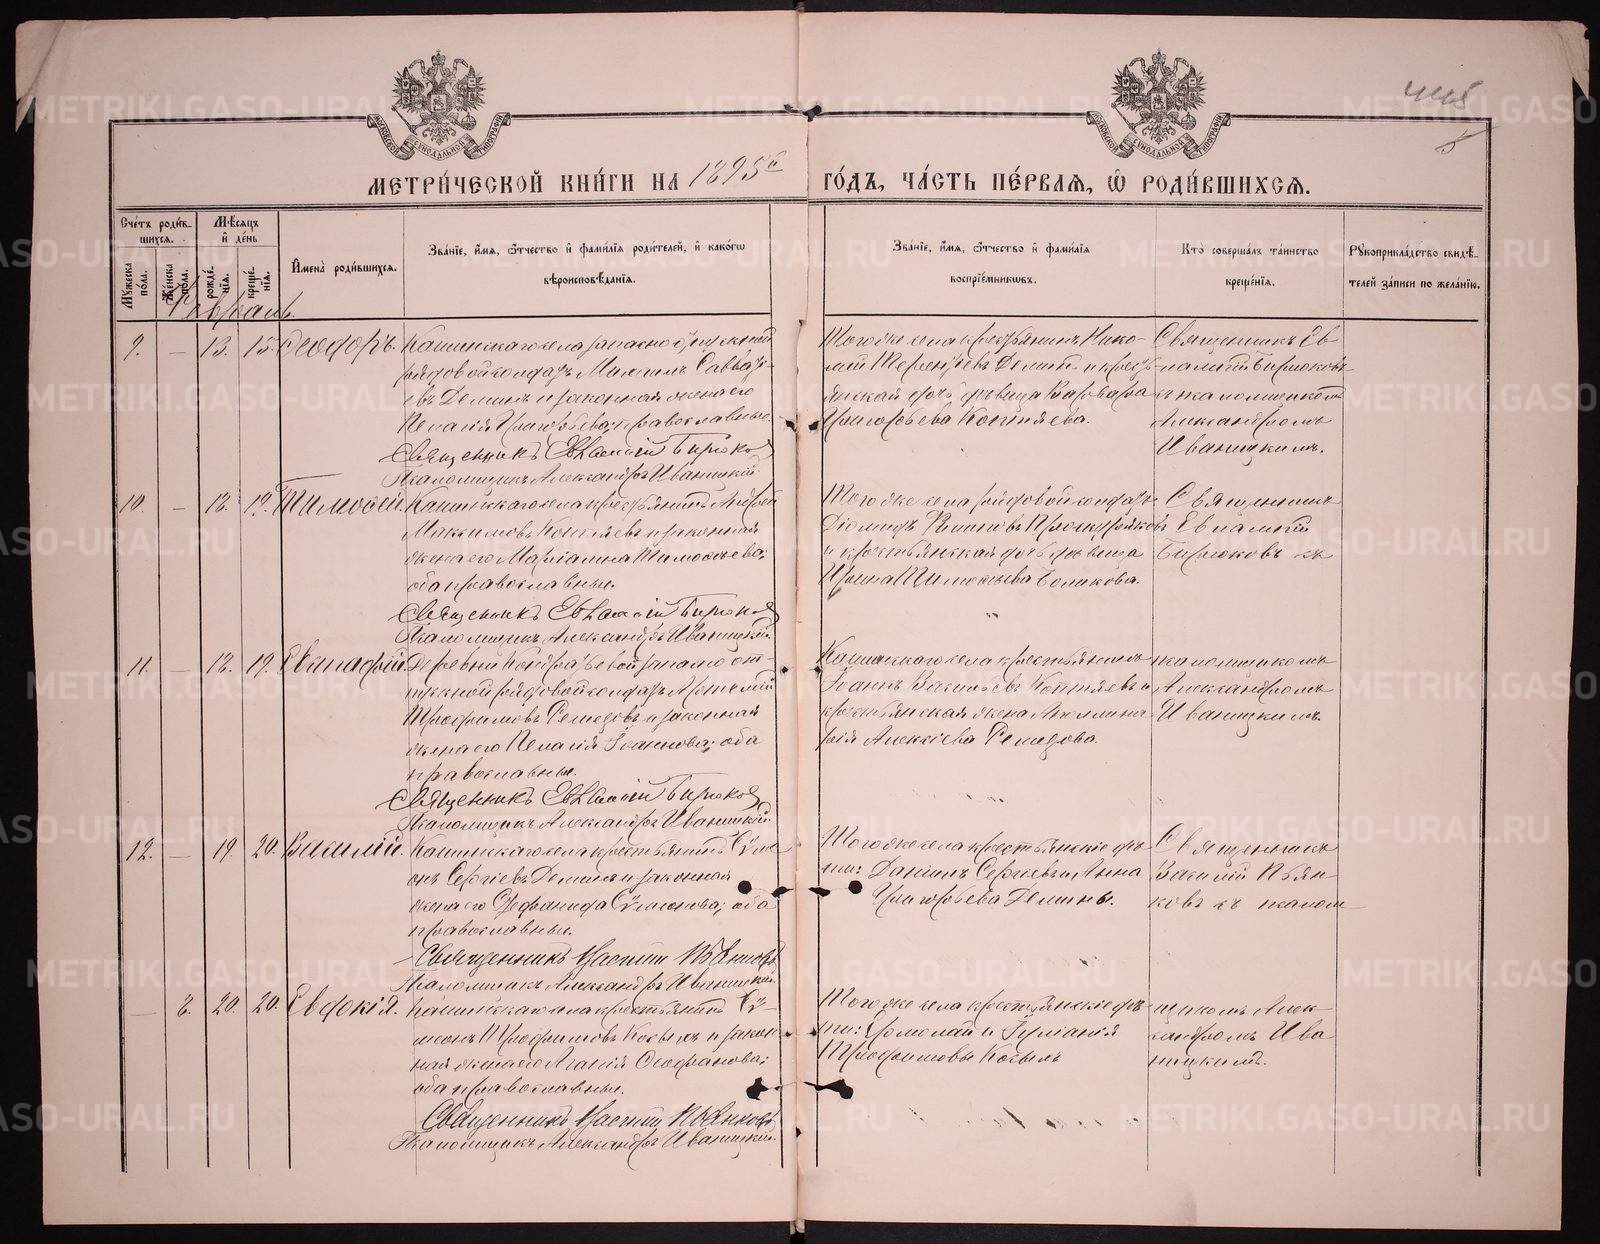 4448
5
МЕТРИ́ЧЕСКОЙ КНИ́ГИ НА 1895й ГО́ДЪ, ЧА́СТЬ ПЕ́РВАЯ, Ѡ҆ РОДИ́ВШИХСЯ.
Сче́тъ роди́вшихся.
Му́жеска по́ла.
Же́нска по́ла.
Мѣ́сяцъ и҆ де́нь
рожде́нїя.
креще́нїя.
И҆мена̀ роди́вшихся.
Зва́нїе, и҆́мя, ѻ҆́тчество и҆ фами́лїя роди́телей, и҆ како́гѡ
вѣроисповѣ́данїя.
Зва́нїе, и҆́мя, ѻ҆́тчество и҆ фами́лїя
воспрїе́мниковъ.
Кто̀ соверша́лъ та́инство
креще́нїя.
Рꙋкоприкла́дство свидѣ́-
телей за́писи по жела́нїю.
Февраль
9. — 13. 15. Ѳеодоръ.
Кашинскаго села запасной, отпускной
рядовой солдатъ Михаилъ Савват-
евъ Деминъ и законная жена его
Пелагія Григорьева; православные.
Священникъ Евлампій Бирюков
Псаломщикъ Александръ Иваницкій.
Того же села крестьянинъ Нико-
лай Терентьевъ Деминъ и кресть-
янская дочь дѣвица Варвара
Григорьева Коптяева.
Священникъ Ев-
лампій Бирюковъ
съ псаломщикомъ
Александромъ
Иваницкимъ.
10. — 18. 19. Тимоѳей.
Кашинскаго села крестьянинъ Андрей
Максимовъ Коптяевъ и законная
жена его Маріанна Тимоѳеева;
оба православные.
Священникъ Евлампій Бирюков
Псаломщикъ Александръ Иваницкій.
Того же села рядовой солдатъ
Діомидъ Проскуряковъ
и крестьянская дочь дѣвица
Ирина Тимоѳеева
Священникъ
Евлампій
Бирюковъ съ
11. — 18. 19. Евстафій.
Деревни Кондратьевой запасно от-
пускной рядовой солдатъ Артемій
Трофимовъ Ремезовъ и законная
жена его Пелагія Іоаннова; оба
православные.
Священникъ Евлампій Бирюков
Псаломщикъ Александръ Иваницкій.
Кашинскаго села крестьянинъ
Іоаннъ Васильевъ Коптяевъ и
крестьянская жена Аполлина-
рія Алексіева Ремезова.
псаломщикомъ
Александромъ
Иваницкимъ.
12. — 19. 20. Василій.
Кашинскаго села крестьянинъ Сѵме-
онъ Сергіевъ Деминъ и законная
жена его Сѵмеонова; оба
православные.
Священникъ Василій Пьянковъ
Псаломщикъ Александръ Иваницкій.
Того же села крестьянскіе дѣ-
ти: Даніилъ Сергіевъ и Анна
Григорьева Демины.
Священникъ
Василій Пьян-
ковъ съ псалом-
— 8. 20. 20. Евдокія.
Кашинскаго села крестьянинъ Сѵ-
меонъ Трофимовъ Косыхъ и закон-
ная жена его Агапія Ѳеофанова;
оба православные.
Священникъ Василій Пьянковъ
Псаломщикъ Александръ Иваницкій.
Того же села крестьянскіе дѣ-
ти: Ермолай и Іуліанія
Трофимовы Косыхъ
щикомъ Алек-
сандромъ Ива-
ницкимъ.